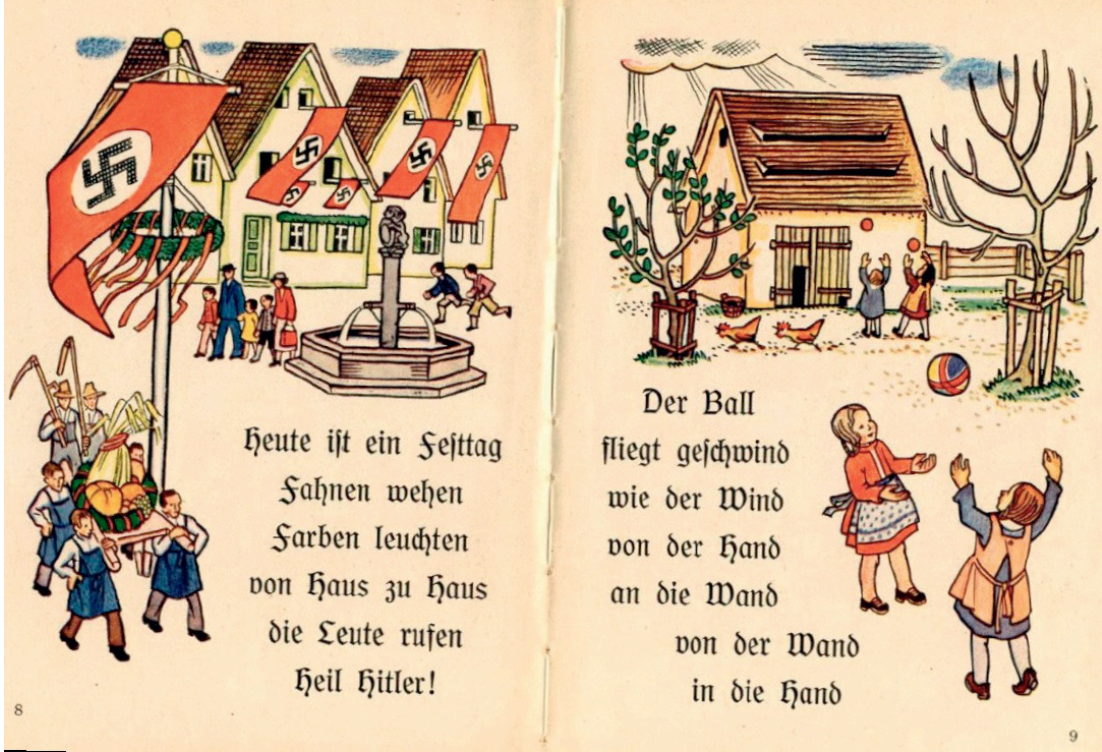 Heute ist ein Festtag
Fahnen wehen
Farben leuchten
von Haus zu Haus
die Leute rufen
Heil Hitler!
8
Der Ball
fliegt geschwind
wie der Wind
von der Hand
an die Wand
von der Wand
in die Hand
9